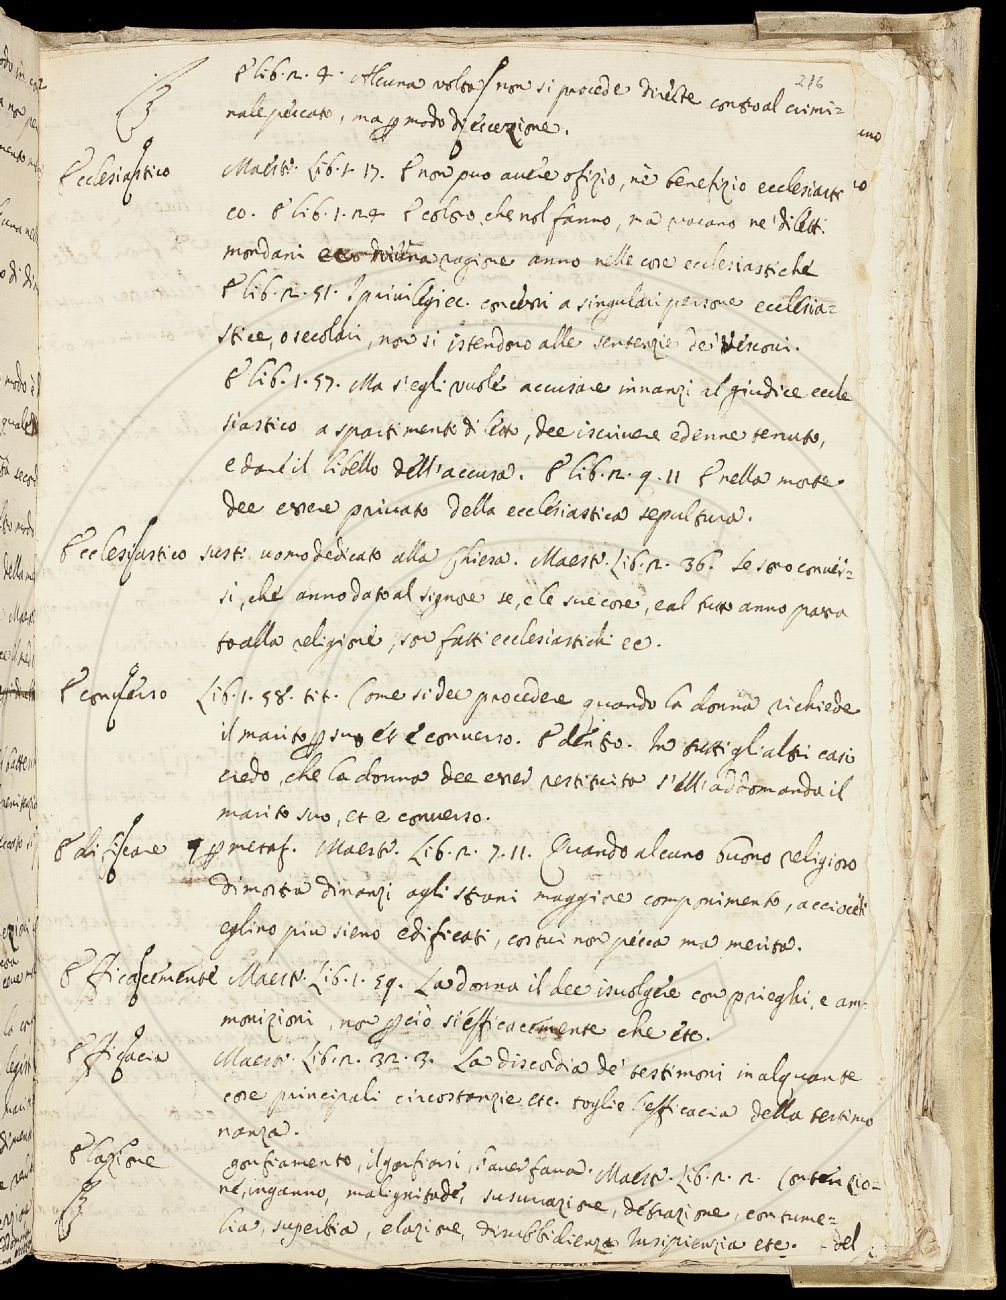 216
E lib. 2. 4. Alcuna volta non si procede direte contro al crimi=
nale peccato, ma p modo di eccezione.
Ecclesiastico Maestr. Lib. 1. 17. E non puo avere ofizio, nè benefizio ecclesiasti
co. E lib. 1. 24 E coloro, che nol fanno, ma vacano ne' diletti
mondani ragione anno nelle cose ecclesiastiche
E lib. 2. 51. I privilegi ec. concessi a singulari persone ecclesia=
stice, o secolari, non si istendono alle sentenzie de' Vescovi.
E lib. 1. 57. Ma s'egli vuole accusare innanzi al giudice eccle
siastico a spartimento di letto, dee iscrivere edenne tenuto,
e dare il libello dell'accusa. E lib. 2. 9. 11 E nella morte
dee essere privato della ecclesiastica sepultura.
Ecclesiastico sust: uomo dedicato alla Chiesa. Maestr. Lib. 2. 36. Se sono conver=
si, che anno dato al signore se, e le sue cose, e al tutto anno passa
to alla religione, son fatti ecclesiastichi ec.
E converso Lib. 1. 58. tit. Come si dee procedere quando la donna richiede
il marito p suo et e converso. E dento. In tutti gl'altri casi
credo, che la donna dee esser restituita s'ell'addomanda il
marito suo, et e converso.
Edificare p metaf. Maestr. Lib. 2. 7. 11. Quando alcuno buono religioso
dimostra dinanzi agli strani maggiore componimento, acciocch
eglino piu sieno edificati, costui non pecca ma merita.
Efficacemente Maestr. Lib. 1. 59. La donna il dee isvolgere con prieghi, e am=
monizioni, non pciò si efficacemente che etc.
Efficacia Maestr. Lib. 2. 32. 3. La discordia de' testimoni in alquante
cose principali circostanzie etc. toglie l'efficacia della testimo
nanza.
Elazione gonfiamento, il gonfiarsi, Maestr. Lib. 2. 2. Contenzio=
ne, inganno, malignitade, susurrazione, detrazione, contume=
lia, superbia, elazione, disubbidienza Insipienzia etc. - del